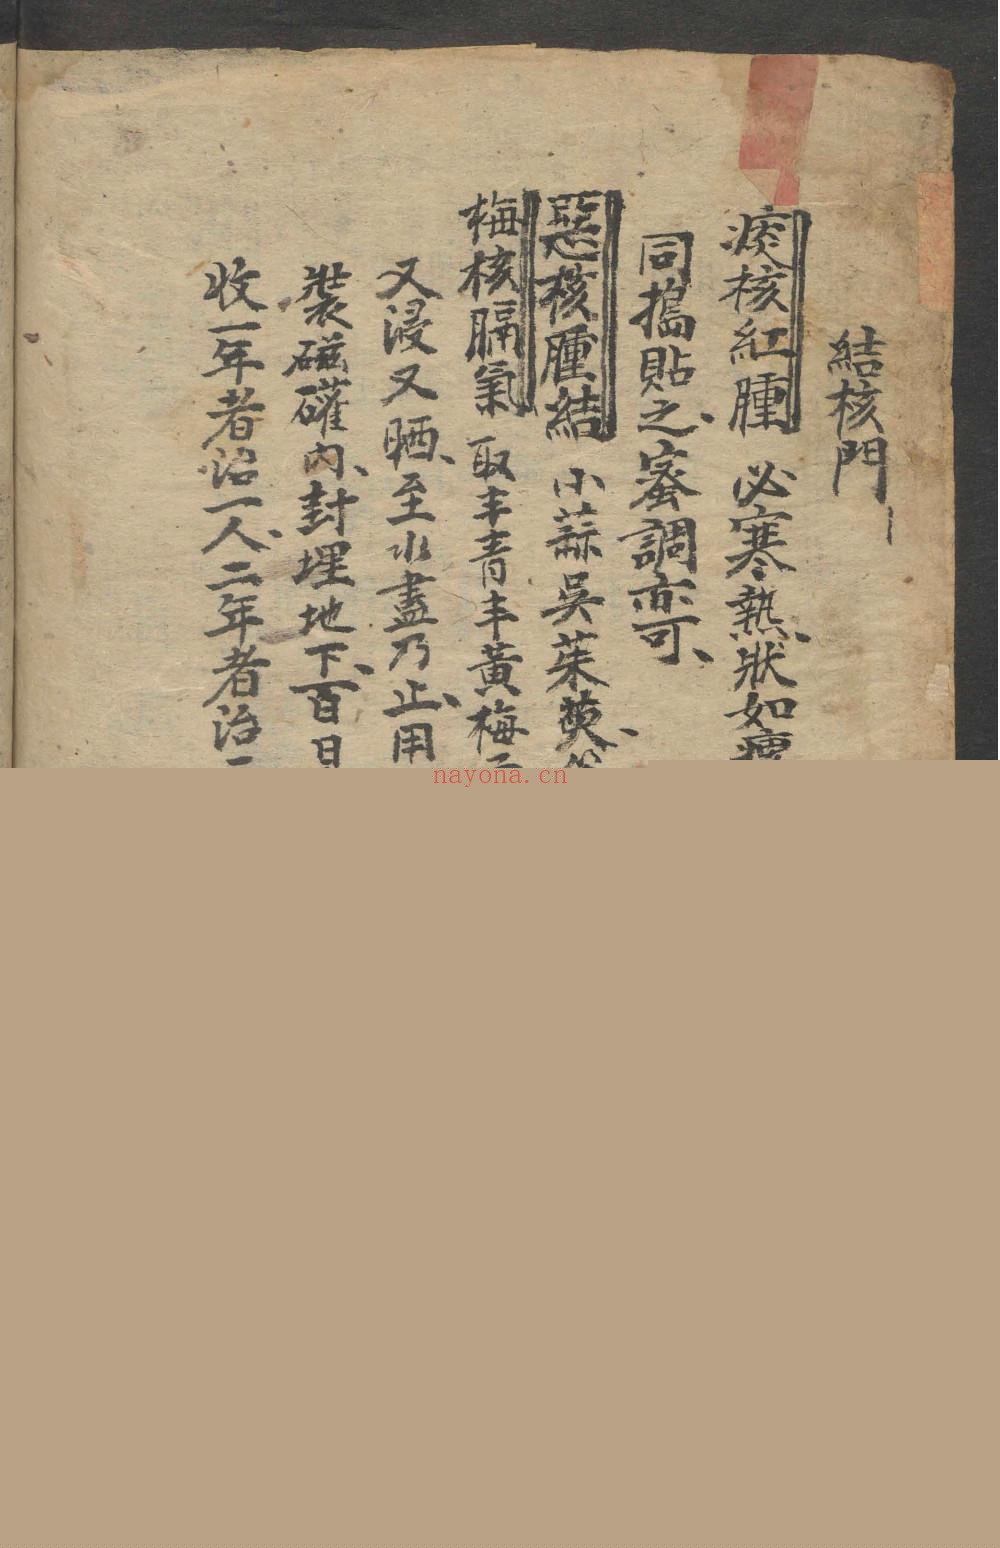 結核門
痰核紅腫 必寒熱、狀如
同搗貼之、蜜調亦可、
惡核腫結 小蒜吳茱萸、
梅核膈氣 取半青半黃梅
又浸又晒、至水盡乃止、用
裝磁礶內、封埋地下、百日
收一年者治一人、二年者治
nayona.cn